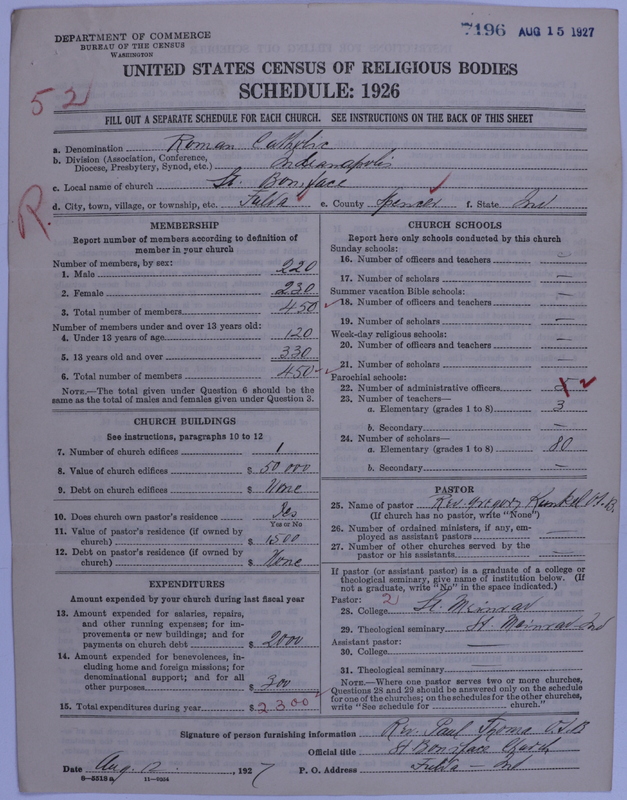 DEPARTMENT OF COMMERCE
BUREAU OF THE CENSUS
WASHINGTON
7196 AUG 15 1927
UNITED STATES CENSUS OF RELIGIOUS BODIES
SCHEDULE: 1926
52
FILL OUT A SEPARATE SCHEDULE FOR EACH CHURCH. SEE INSTRUCTIONS ON THE BACK OF THIS SHEET
a. Denomination Roman Catholic
b. Division (Association, Conference,
Diocese, Presbytery, Synod, etc.) Indianapolis
c. Local name of church St. Boniface
d. City, town, village, or township, etc. Fulda e. County Spencer f. State Ind
R.
MEMBERSHIP
Report number of members according to definition of
member in your church
Number of members, by sex:
1. Male 220
2. Female 230
3. Total number of members 450
Number of members under and over 13 years old:
4. Under 13 years of age 120
5. 13 years old and over 330
6. Total number of members 450
NOTE.—The total given under Question 6 should be
same as the total of males and females given under Question 3.
CHURCH BUILDINGS
See instructions, paragraphs 10 to 12
7. Number of church edifices 1
8. Value of church edifices $ 50.000
9. Debt on church edifices $ None
10. Does church own pastor's residence Yes
Yes or No
11. Value of pastor's residence (if owned by
church) $ 1500
12. Debt on pastor's residence (if owned by
church) $ None
EXPENDITURES
Amount expended by your church during last fiscal year
13. Amount expended for salaries, repairs,
and other running expenses; for im-
provements or new buildings; and for
payments on church debt $ 2000
14. Amount expended for benevolences, in-
cluding home and foreign missions; for
denominational support; and for all
other purposes $ 300
15. Total expenditures during year $ 2300
CHURCH SCHOOLS
Report here only schools conducted by this church
Sunday schools:
16. Number of officers and teachers —
17. Number of scholars —
Summer vacation Bible schools:
18. Number of officers and teachers —
19. Number of scholars —
Week-day religious schools:
20. Number of officers and teachers —
21. Number of scholars —
Parochial schools:
22. Number of administrative officers
23. Number of teachers—
a. Elementary (grades 1 to 8) 3
b. Secondary —
24. Number of scholars—
a. Elementary (grades 1 to 8) 80
b. Secondary —
PASTOR
25. Name of pastor Rev. Gregory Kunkel O.S.B.
(If church has no pastor, write "None")
26. Number of ordained ministers, if any, em-
ployed as assistant pastors
27. Number of other churches served by the
pastor or his assistants
If pastor (or assistant pastor) is a graduate of a college or
theological seminary, give name of institution below. (If
not a graduate, write "No" in the space indicated.)
Pastor: 2
28. College St. Meinrad
29. Theological seminary St. Meinrad Ind
Assistant pastor:
30. College
31. Theological seminary
NOTE.—Where one pastor serves two or more churches,
Questions 28 and 29 should be answered only on the schedule
for one of the churches; on the schedules for the other churches,
write "See schedule for church."
Signature of person furnishing information Rev. Paul O.S.B
Official title St Boniface Church
Date Aug. , 1927 P. O. Address Fulda — Ind
11—9334